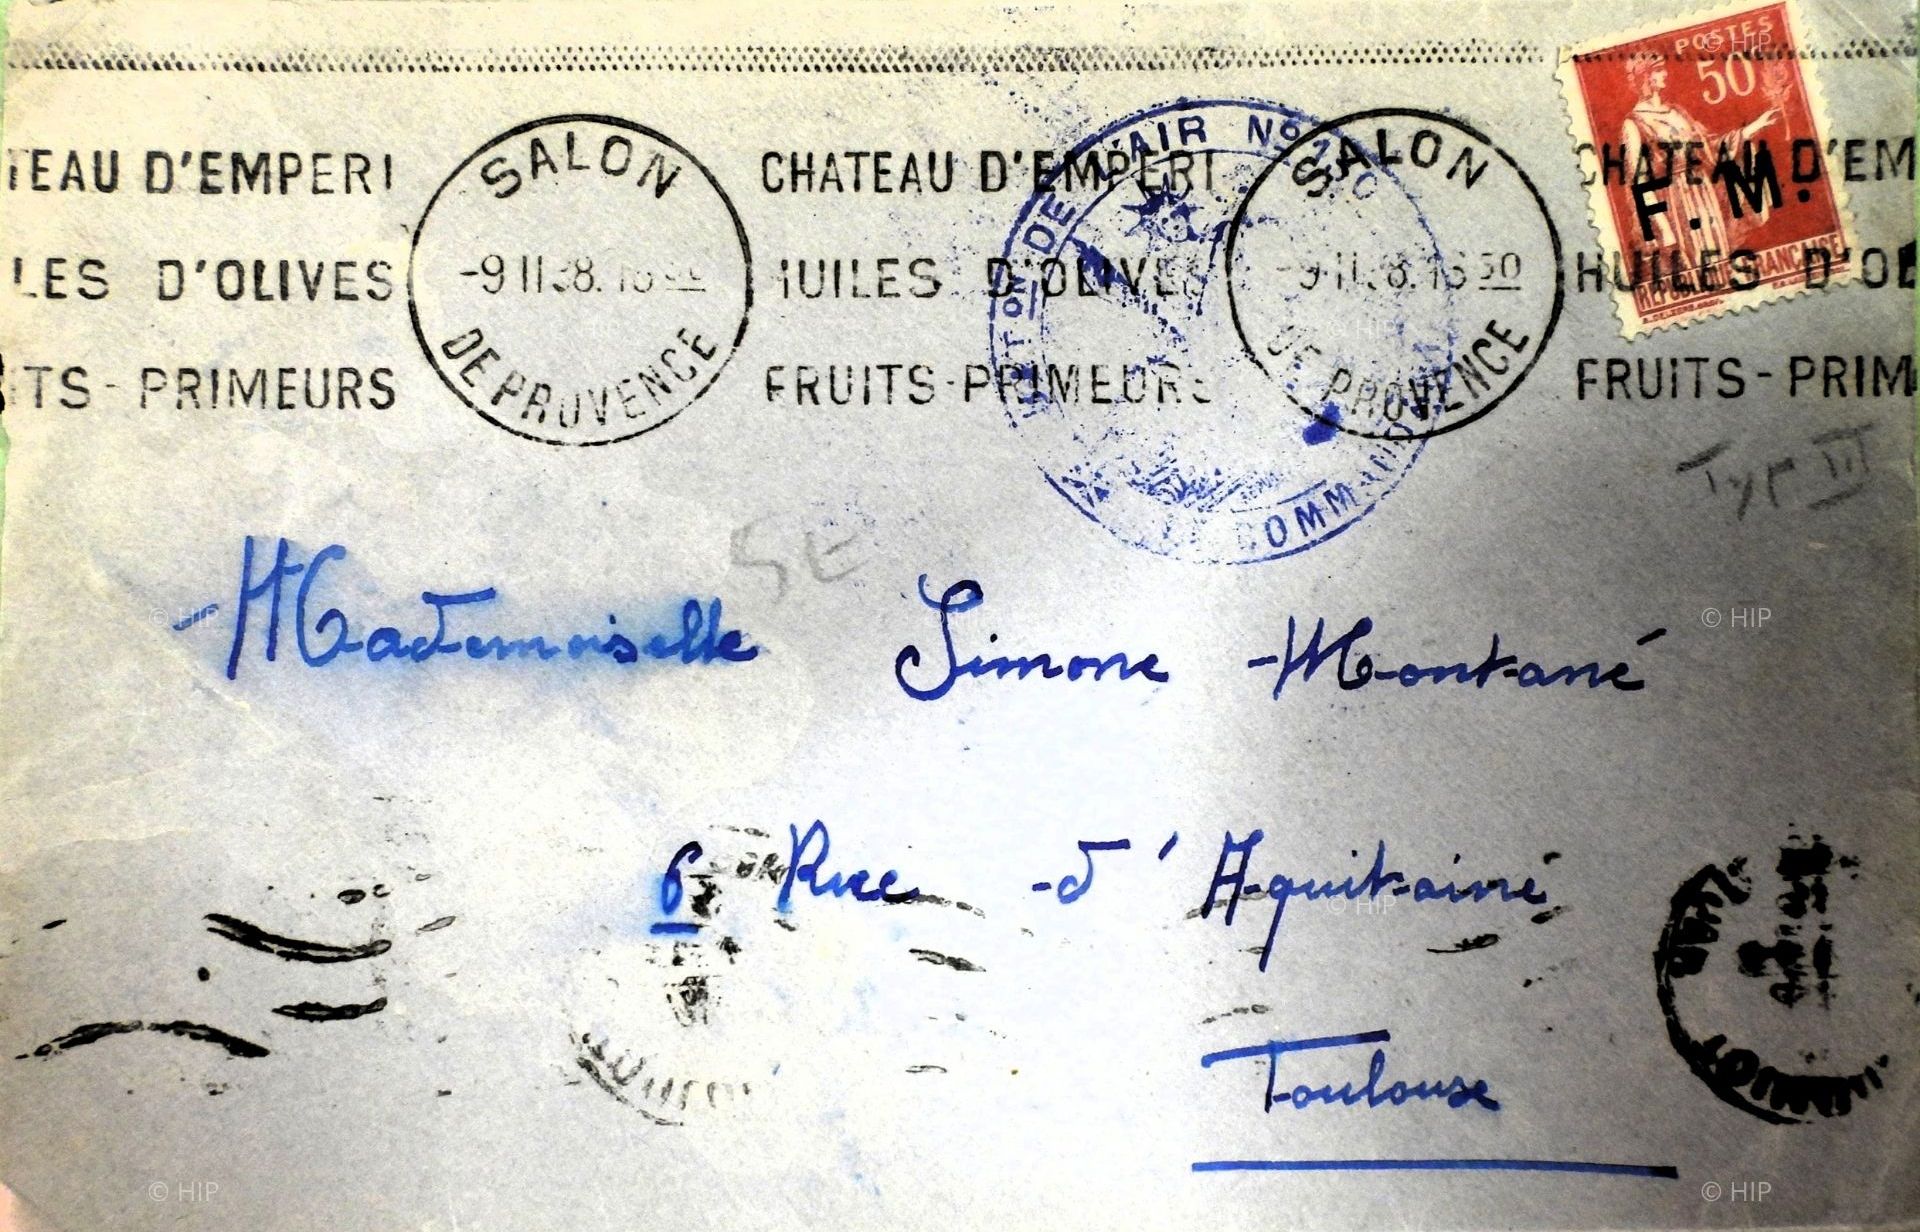 POSTES
50
F. M.
REPUBLIQUE FRANÇAISE
TEAU D'EMPERI
LES D'OLIVES
ITS - PRIMEURS
SALON
DE PROVENCE
CHATEAU D'EMPERI
HUILES D'OLIVES
FRUITS - PRIMEURS
DE L'AIR No
COMMANDANT
SALON
DE PROVENCE
CHATEAU D'EM
HUILES D'OL
FRUITS - PRIM
Typ III
SE
Mademoiselle Simone Montané
6 Rue d'Aquitainé
Toulouse
© HIP
© HIP
© HIP
© HIP
© HIP
© HIP
© HIP
© HIP